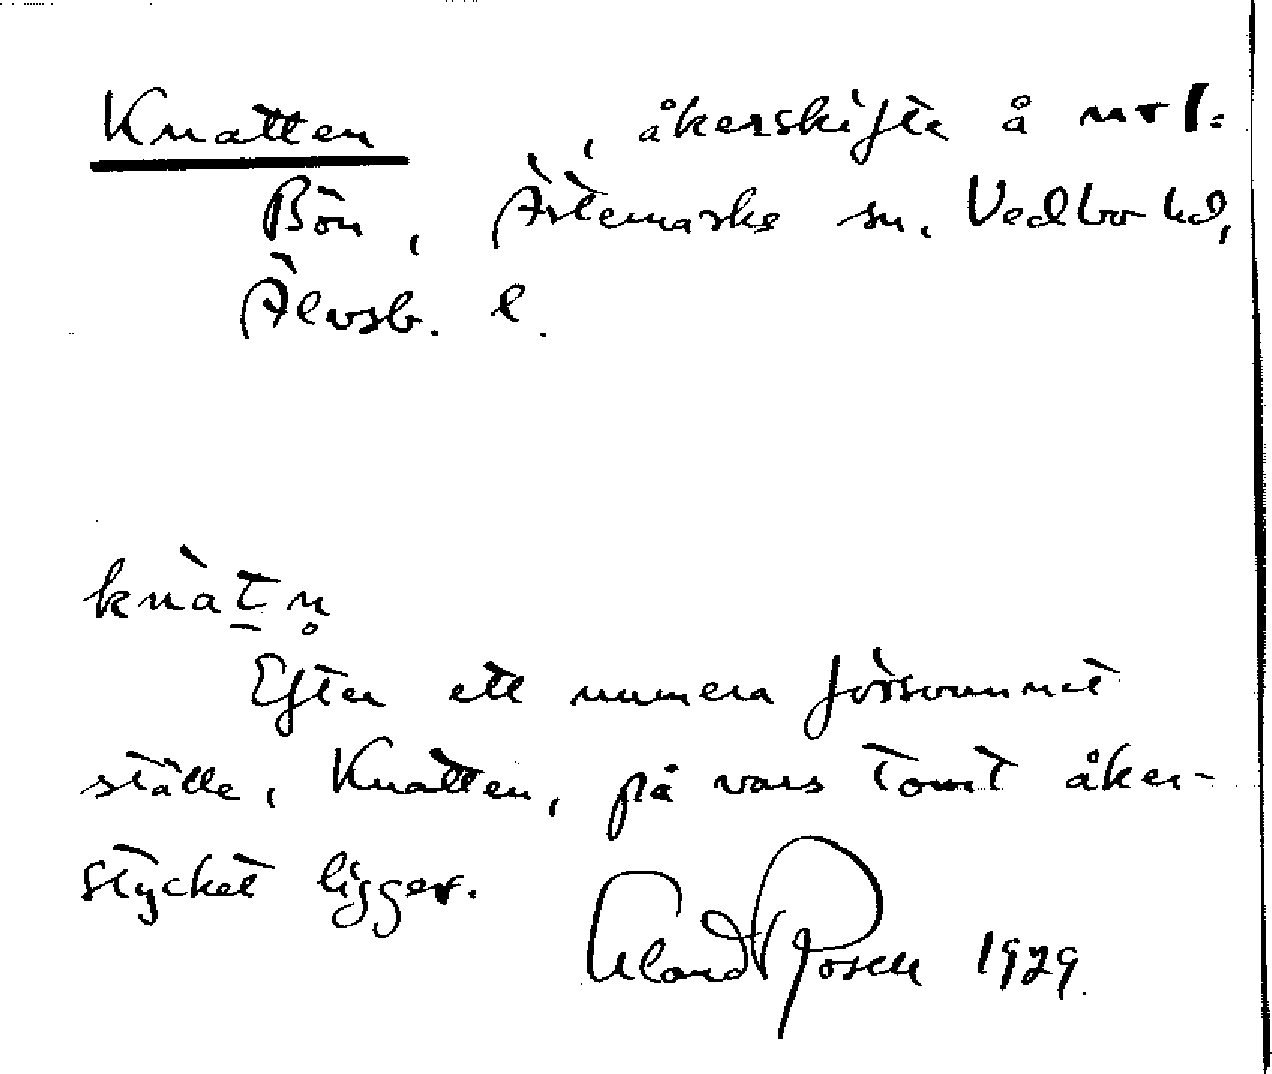 Knatten, åkerskifte å
Bön, Ärtemarke sn. Vedbo hd,
Älvsb. l.
knàt̠n̥
Efter ett numera försvunnet
ställe, Knatten, på vars tomt åker-
stycket ligger.
Rosell 1929.